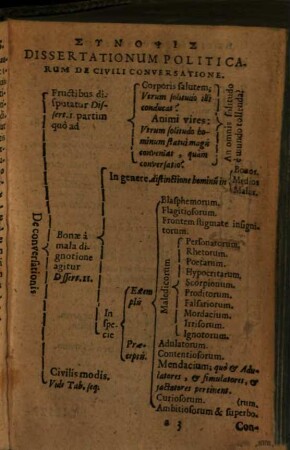 ΣΥΝΟΨΙΣ
DISSERTATIONUM POLITICA-
RUM DE CIVILI CONVERSATIONE.
De conversationis
Fructibus di-
sputatur Dis-
sert. 1. partim
quò ad
Corporis salutem;
Verum solitudo illi
conducat?
Animi vires:
Verum solitudo ho-
minum statui magis
conveniat, quàm
conversatio?
An omnis solitudo
è mundo tollenda?
Bonæ à
mala di-
gnotione
agitur
Dissert. 11.
In genere, distinctione hominũ in
Bonos,
Medios
Malos.
In spe-
cie
Exem-
plis
Blasphemorum.
Flagitiosorum.
Frontem stigmate insigni-
torum.
Maledicorum
Personatorum.
Rhetorum.
Poëtarum.
Hypocritarum.
Scorpionum.
Proditorum.
Falsariorum.
Mordacium.
Irrisorum.
Ignotorum.
Præ-
ceptis
Adulatorum.
Contentiosorum.
Mendacium; quò & Adu-
latores, & simulatores, &
jactatores pertinent.
Curiosorum. (rum.
Ambitiosorum & superbo-
Civilis modis.
Vide Tab. seq.
a 3 Con-